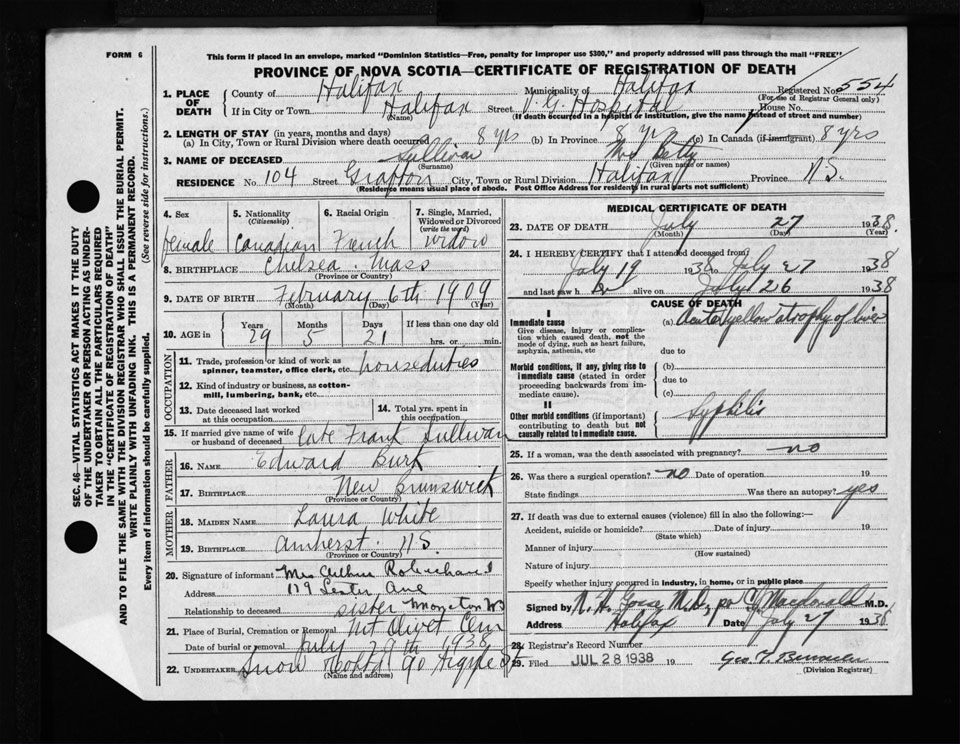 FORM 6
This form if placed in an envelope, marked "Dominion Statistics—Free, penalty for improper use $300," and properly addressed will pass through the mail "FREE"
PROVINCE OF NOVA SCOTIA—CERTIFICATE OF REGISTRATION OF DEATH
1. PLACE OF DEATH
County of Halifax Municipality of Halifax Registered No. 554
(For use of Registrar General only)
If in City or Town Halifax Street V. G. Hospital House No.
(Name) (If death occurred in a hospital or institution, give the name instead of street and number)
2. LENGTH OF STAY (in years, months and days)
(a) In City, Town or Rural Division where death occurred 8 yrs (b) In Province 8 yrs (c) In Canada (if immigrant) 8 yrs
3. NAME OF DECEASED Sullivan Mrs Betty
(Surname) (Given name or names)
RESIDENCE No. 104 Street Grafton City, Town or Rural Division Halifax Province N.S.
(Residence means usual place of abode. Post Office Address for residents in rural parts not sufficient)
4. Sex female
5. Nationality (Citizenship) Canadian
6. Racial Origin French
7. Single, Married, Widowed or Divorced (write the word) widow
8. BIRTHPLACE Chelsea. Mass
(Province or Country)
9. DATE OF BIRTH February 6th 1909
(Month) (Day) (Year)
10. AGE in Years 29 Months 5 Days 21 If less than one day old hrs. or min.
OCCUPATION
11. Trade, profession or kind of work as spinner, teamster, office clerk, etc. houseduties
12. Kind of industry or business, as cotton-mill, lumbering, bank, etc.
13. Date deceased last worked at this occupation
14. Total yrs. spent in this occupation
15. If married give name of wife or husband of deceased Late Frank Sullivan
FATHER
16. NAME Edward Burk
17. BIRTHPLACE New Brunswick
(Province or Country)
MOTHER
18. MAIDEN NAME Laura White
19. BIRTHPLACE Amherst. N.S.
(Province or Country)
20. Signature of informant Mrs Arthur Robichaud
Address Ave
Relationship to deceased sister Moncton NB
21. Place of Burial, Cremation or Removal Mt Olivet Cem
Date of burial or removal July 29th 1938
22. UNDERTAKER Snow 90 Argyle St
(Name and address)
MEDICAL CERTIFICATE OF DEATH
23. DATE OF DEATH July 27 1938.
(Month) (Day) (Year)
24. I HEREBY CERTIFY that I attended deceased from:
July 19 1938 to July 27 1938
and last saw h alive on July 26 1938
CAUSE OF DEATH
I
Immediate cause
Give disease, injury or complication which caused death, not the mode of dying, such as heart failure, asphyxia, asthenia, etc
(a) Acute yellow atrophy of liver
due to
Morbid conditions, if any, giving rise to immediate cause (stated in order proceeding backwards from immediate cause).
(b)
due to
(c)
II
Other morbid conditions (if important) contributing to death but not causally related to immediate cause.
Syphilis
25. If a woman, was the death associated with pregnancy? no
26. Was there a surgical operation? no Date of operation 19
State findings Was there an autopsy? yes
27. If death was due to external causes (violence) fill in also the following:—
Accident, suicide or homicide? Date of injury 19
(State which)
Manner of injury
(How sustained)
Nature of injury
Specify whether injury occurred in industry, in home, or in public place
Signed by N. H. Gosse M.D. per Macdonald M.D.
Address Halifax Date July 27 1938
28. Registrar's Record Number
29. Filed JUL 28 1938 19
(Division Registrar)
SEC. 46—VITAL STATISTICS ACT MAKES IT THE DUTY
OF THE UNDERTAKER OR PERSON ACTING AS UNDER-
TAKER TO OBTAIN ALL THE PARTICULARS REQUIRED
IN THE "CERTIFICATE OF REGISTRATION OF DEATH"
AND TO FILE THE SAME WITH THE DIVISION REGISTRAR WHO SHALL ISSUE THE BURIAL PERMIT.
WRITE PLAINLY WITH UNFADING INK. THIS IS A PERMANENT RECORD.
Every item of information should be carefully supplied. (See reverse side for instructions.)